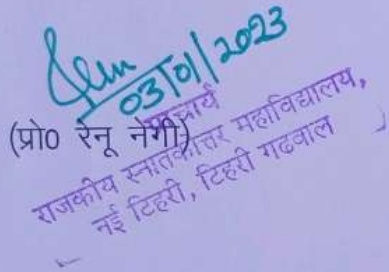 03/01/2023
(प्रो० रेनू नेगी)
प्राचार्य
राजकीय स्नातकोत्तर महाविद्यालय,
नई टिहरी, टिहरी गढवाल